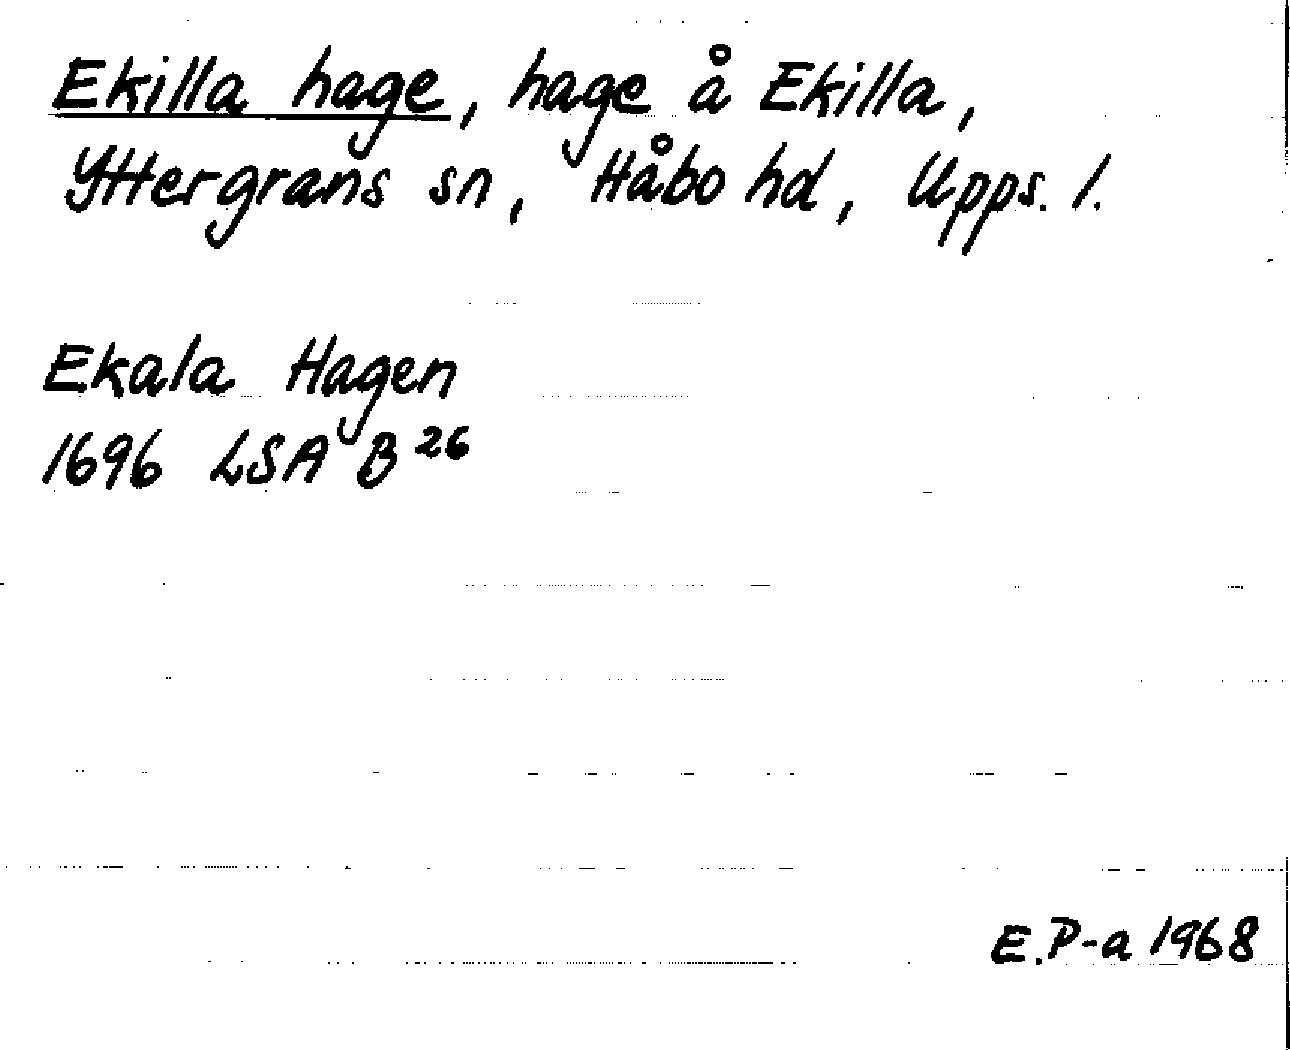 Ekilla hage, hage å Ekilla,
Yttergrans sn, Håbo hd, Upps. l.
Ekala Hagen
1696 LSA B 26
E.P-a 1968